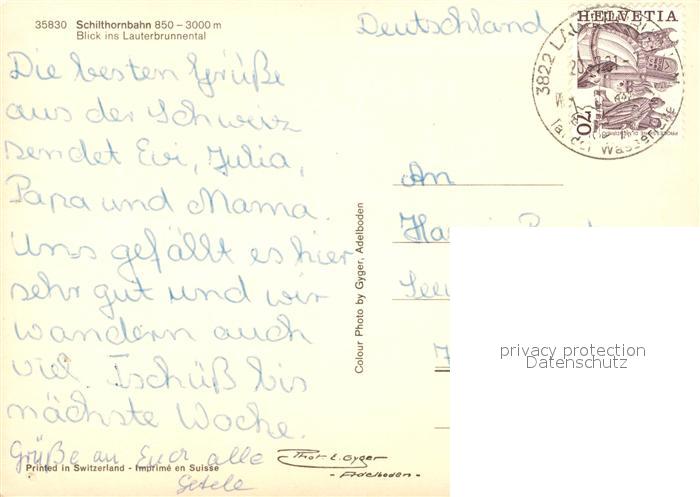 35830 Schilthornbahn 850 – 3000 m
Blick ins Lauterbrunnental
Deutschland
HELVETIA
70
3822
Die besten Grüße
aus der Schweiz
sendet Evi, Julia,
Papa und Mama.
Uns gefällt es hier
sehr gut und wir
wandern auch
viel. Tschüß bis
nächste Woche.
Grüße an Euch alle
An
Colour Photo by Gyger, Adelboden
privacy protection
Datenschutz
Phot. E. Gyger
- Adelboden -
Printed in Switzerland - Imprimé en Suisse